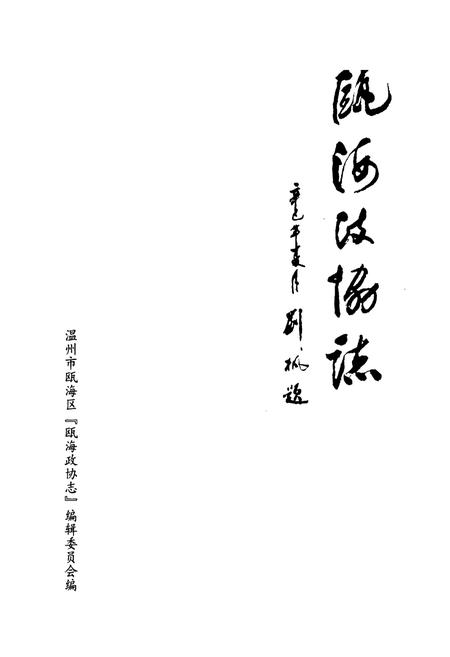 瓯海政协志
辛巳年夏月 刘枫题
温州市瓯海区『瓯海政协志』编辑委员会编